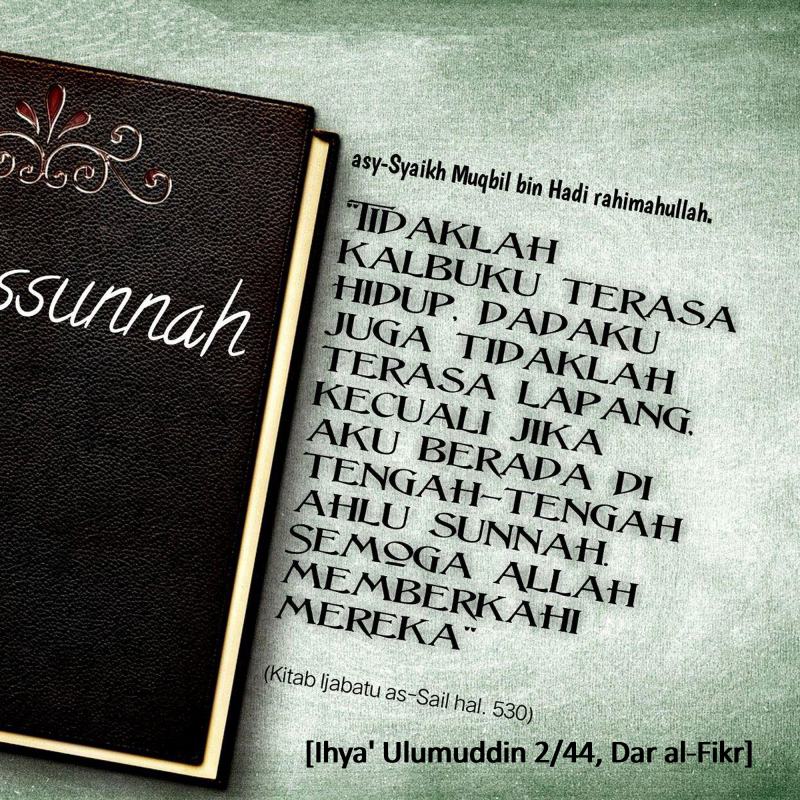 ssunnah
asy-Syaikh Muqbil bin Hadi rahimahullah.
"TIDAKLAH
KALBUKU TERASA
HIDUP. DADAKU
JUGA TIDAKLAH
TERASA LAPANG.
KECUALI JIKA
AKU BERADA DI
TENGAH-TENGAH
AHLU SUNNAH.
SEMOGA ALLAH
MEMBERKAHI
MEREKA"
(Kitab Ijabatu as-Sail hal. 530)
[Ihya' Ulumuddin 2/44, Dar al-Fikr]